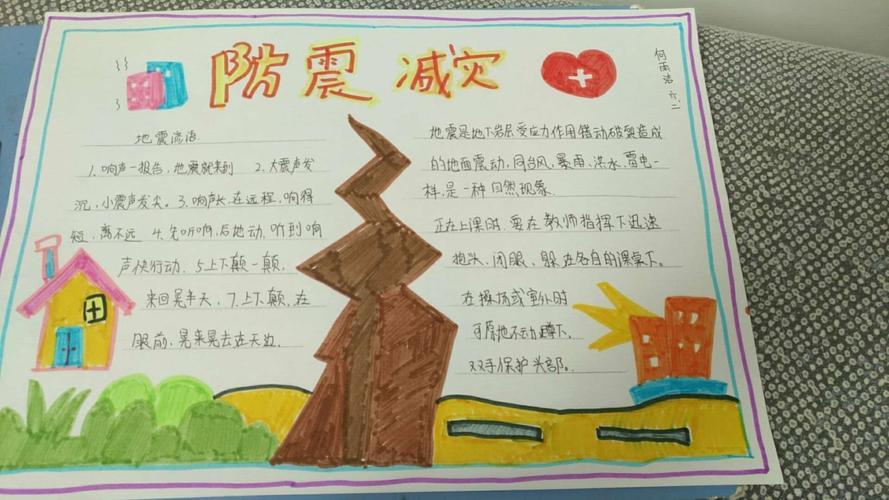 防震减灾
何雨洁 六.二
地震谚语
1.响声一报告,地震就来到 2.大震声发
沉,小震声发尖。3.响声长,在远程,响得
短,离不远 4.先听响,后地动,听到响
声快行动、5上下颠一颠,
来回晃半天、7.上下颠,在
眼前,晃来晃去在天边.
地震是地下岩层受应力作用错动破裂造成
的地面震动,同台风、暴雨、洪水、雷电一
样,是一种自然现象.
正在上课时,要在教师指挥下迅速
抱头、闭眼、躲在各自的课桌下。
在操场或室外时
可原地不动蹲下。
双手保护头部。